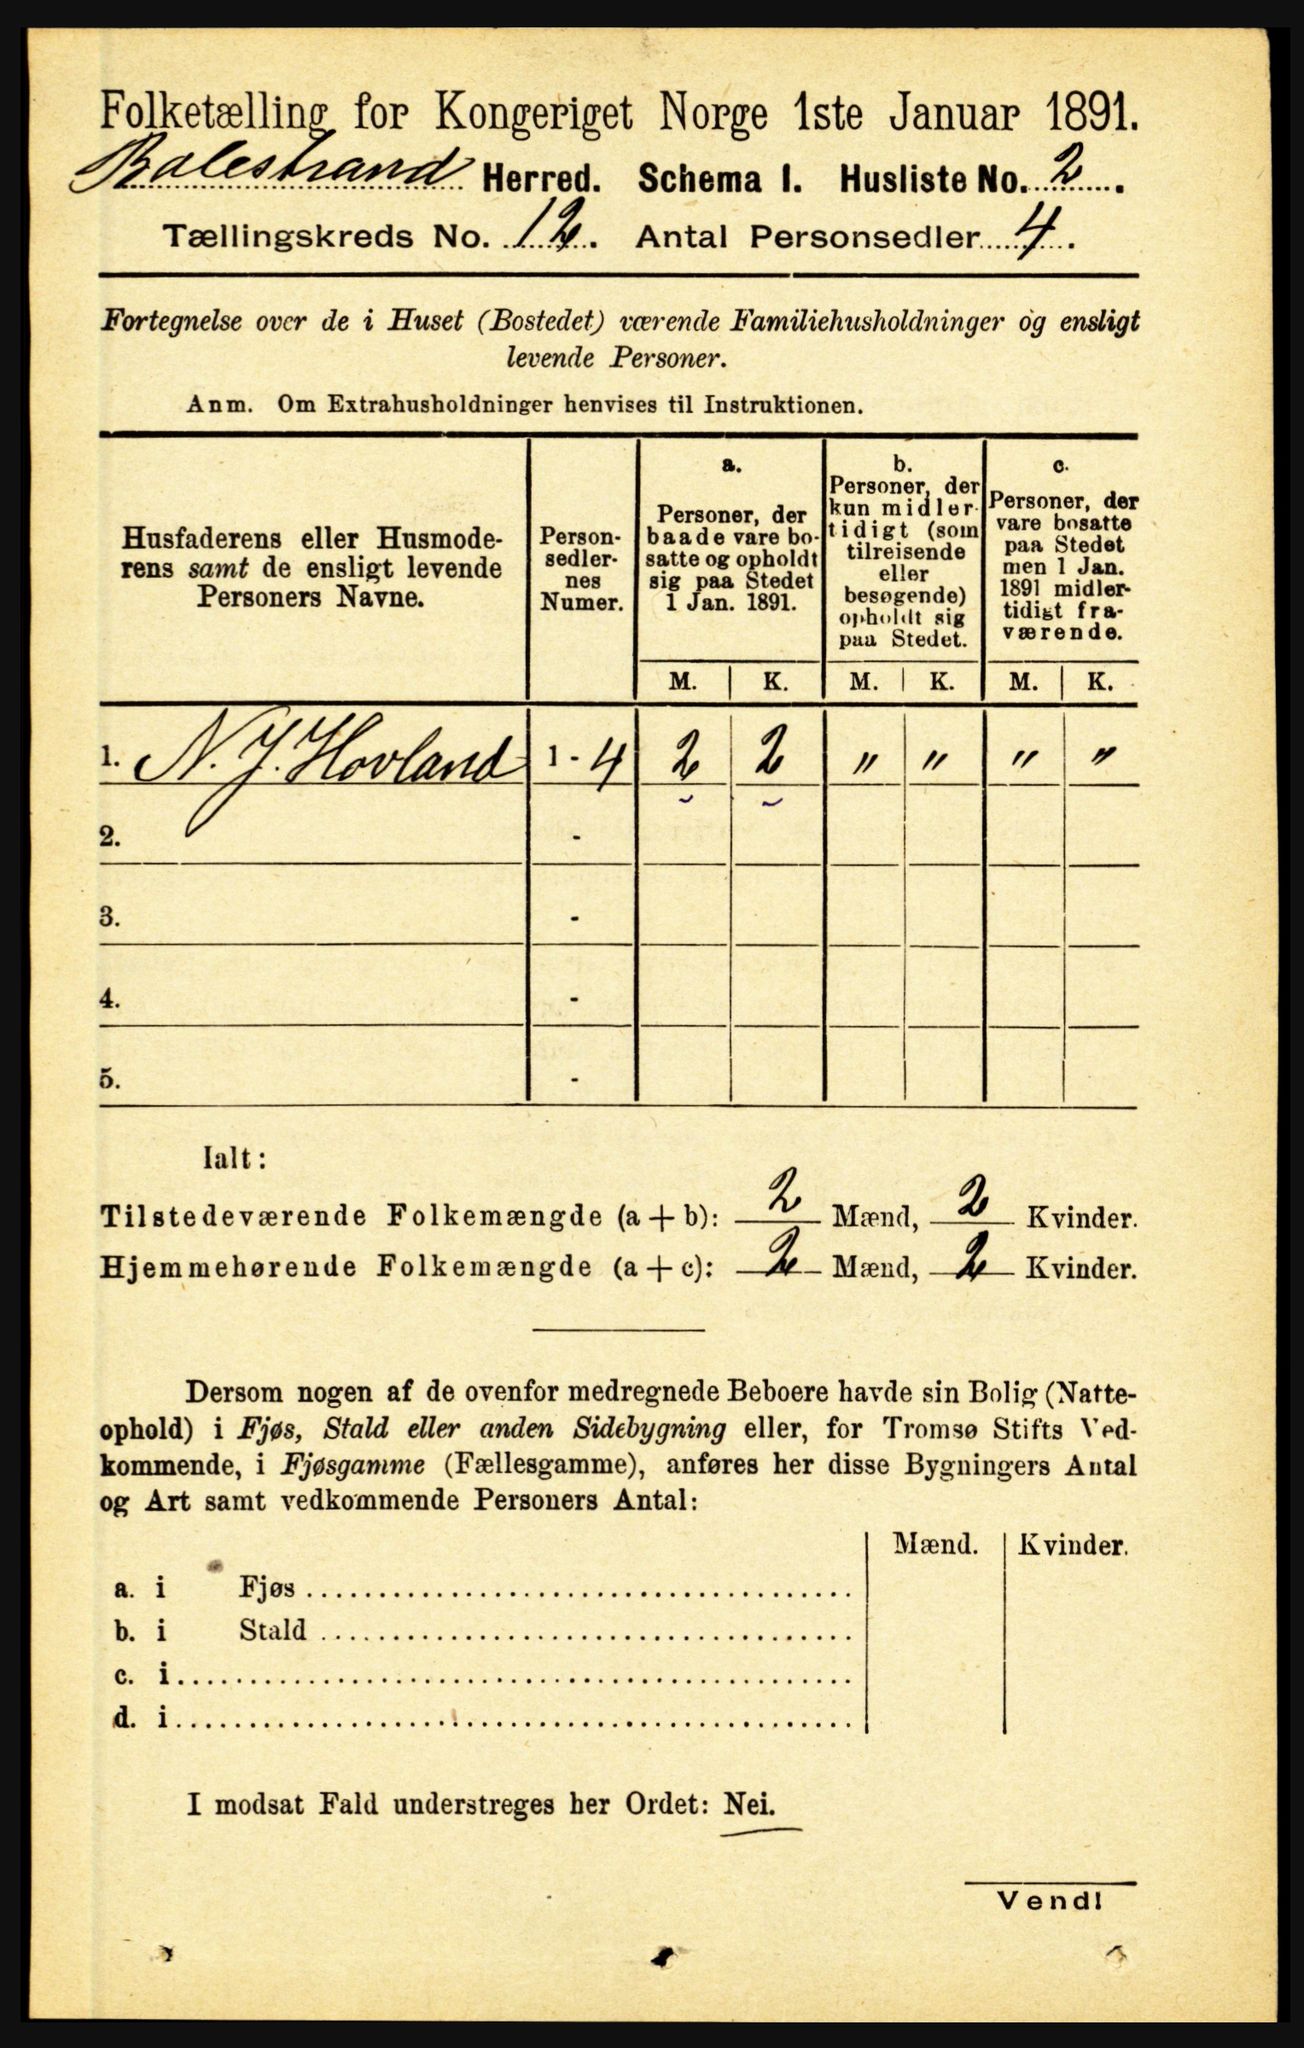 Folketælling for Kongeriget Norge 1ste Januar 1891.
Balestrand Herred. Schema I. Husliste No. 2.
Tællingskreds No. 12. Antal Personsedler 4.
Fortegnelse over de i Huset (Bostedet) værende Familiehusholdninger og ensligt
levende Personer.
Anm. Om Extrahusholdninger henvises til Instruktionen.
Husfaderens eller Husmode-
rens samt de ensligt levende
Personers Navne.
Person-
sedler-
nes
Numer.
a.
Personer, der
baade vare bo-
satte og opholdt
sig paa Stedet
1 Jan. 1891.
b.
Personer, der
kun midler-
tidigt (som
tilreisende
eller
besøgende)
opholdt sig
paa Stedet.
c.
Personer, der
vare bosatte
paa Stedet
men 1 Jan.
1891 midler-
tidigt fra-
værende.
M. K. M. K. M. K.
1. N. J. Hovland 1 - 4 2 2 " " " "
2. -
3. -
4. -
5. -
Ialt:
Tilstedeværende Folkemængde (a + b): 2 Mænd, 2 Kvinder.
Hjemmehørende Folkemængde (a + c): 2 Mænd, 2 Kvinder.
Dersom nogen af de ovenfor medregnede Beboere havde sin Bolig (Natte-
ophold) i Fjøs, Stald eller anden Sidebygning eller, for Tromsø Stifts Ved-
kommende, i Fjøsgamme (Fællesgamme), anføres her disse Bygningers Antal
og Art samt vedkommende Personers Antal:
Mænd. Kvinder.
a. i Fjøs
b. i Stald
c. i
d. i
I modsat Fald understreges her Ordet: Nei.
Vend!